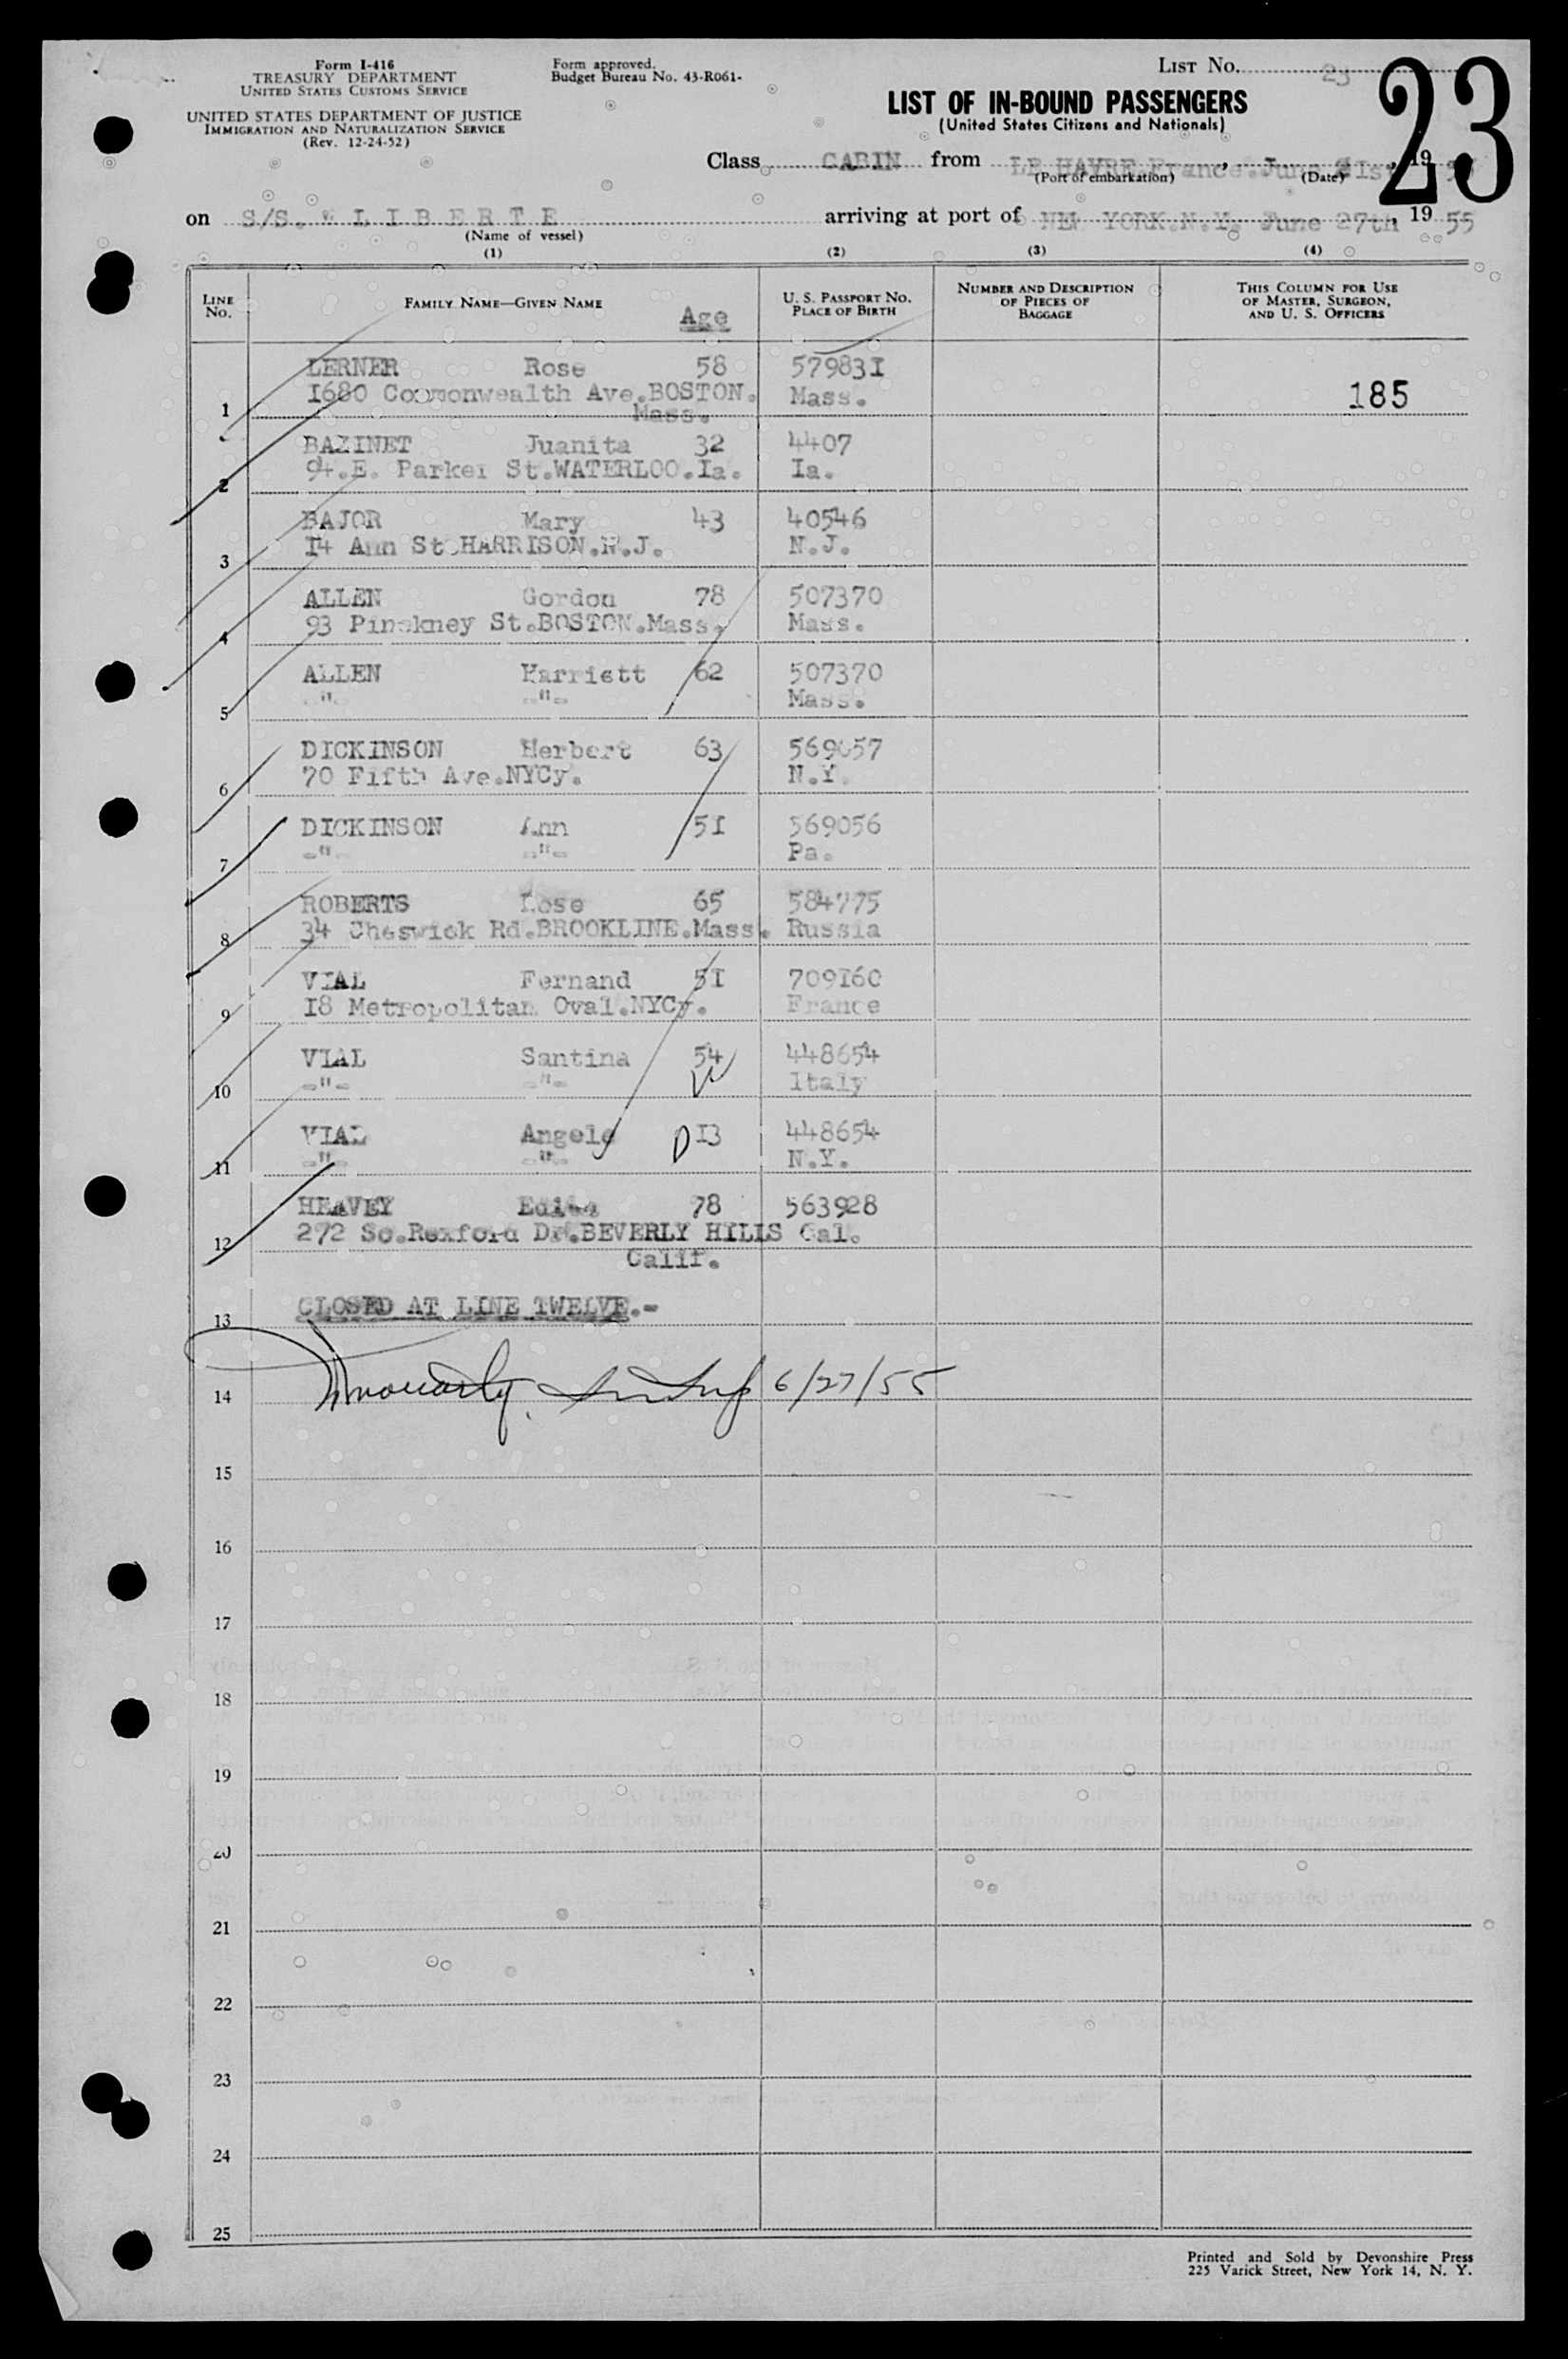 Form I-416
TREASURY DEPARTMENT
UNITED STATES CUSTOMS SERVICE
UNITED STATES DEPARTMENT OF JUSTICE
IMMIGRATION AND NATURALIZATION SERVICE
(Rev. 12-24-52)
Form approved.
Budget Bureau No. 43-R061-
LIST No. 23
23
LIST OF IN-BOUND PASSENGERS
(United States Citizens and Nationals)
Class CABIN from LE HAVRE.France.June 21st, 19 55
(Port of embarkation) (Date)
on S/S. L I B E R T E arriving at port of NEW YORK.N.Y. June 27th, 19 55
(Name of vessel)
(1) (2) (3) (4)
LINE No. FAMILY NAME—GIVEN NAME Age U. S. PASSPORT No. PLACE OF BIRTH NUMBER AND DESCRIPTION OF PIECES OF BAGGAGE THIS COLUMN FOR USE OF MASTER, SURGEON, AND U. S. OFFICERS
LERNER Rose 58 57983I
1 I680 Commonwealth Ave.BOSTON. Mass. 185
Mass.
BAZINET Juanita 32 4407
2 94.E. Parker St.WATERLOO.Ia. Ia.
BAJOR Mary 43 40546
3 I4 Ann St.HARRISON.N.J. N.J.
ALLEN Gordon 78 507370
4 93 Pinckney St.BOSTON.Mass. Mass.
ALLEN Harriett 62 507370
5 -"- -"- Mass.
DICKINSON Herbert 63 569057
6 70 Fifth Ave.NYCy. N.Y.
DICKINSON Ann 5I 569056
7 -"- -"- Pa.
ROBERTS Rose 65 584775
8 34 Cheswick Rd.BROOKLINE.Mass. Russia
VIAL Fernand 5I 709I60
9 I8 Metropolitan Oval.NYCy. France
VIAL Santina 54 448654
10 -"- -"- Italy
VIAL Angele I3 448654
11 -"- -"- N.Y.
HEAVEY Edith 78 563928
12 272 So.Rexford Dr.BEVERLY HILLS Cal.
Calif.
13 CLOSED AT LINE TWELVE.-
14 6/27/55
15
16
17
18
19
20
21
22
23
24
25
Printed and Sold by Devonshire Press
225 Varick Street, New York 14, N. Y.